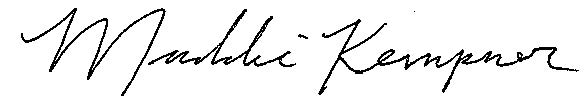 Maddie Kempner